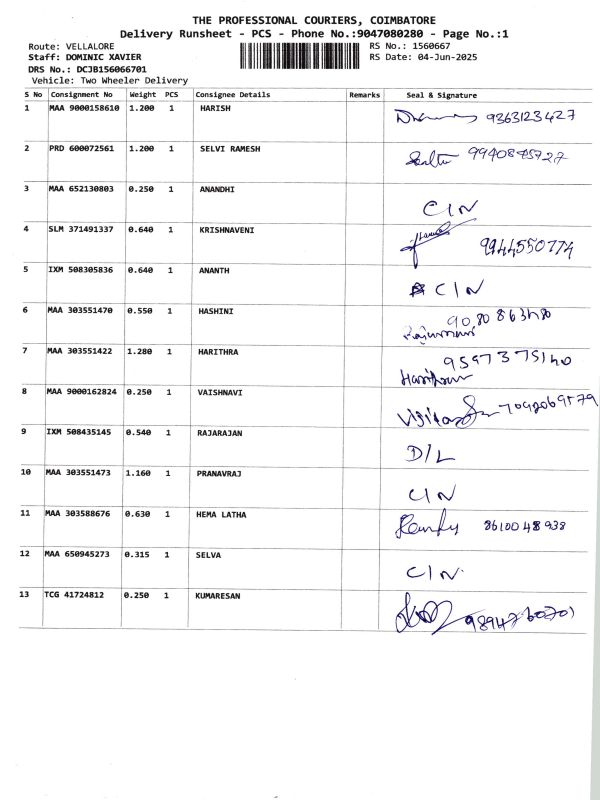 THE PROFESSIONAL COURIERS, COIMBATORE
Delivery Runsheet - PCS - Phone No.:9047080280 - Page No.:1
Route: VELLALORE
RS No.: 1560667
Staff: DOMINIC XAVIER
RS Date: 04-Jun-2025
DRS No.: DCJB156066701
Vehicle: Two Wheeler Delivery
S No Consignment No Weight PCS Consignee Details Remarks Seal & Signature
1 MAA 9000158610 1.200 1 HARISH 9363123427
2 PRD 600072561 1.200 1 SELVI RAMESH
3 MAA 652130803 0.250 1 ANANDHI C/N
4 SLM 371491337 0.640 1 KRISHNAVENI 9944550774
5 IXM 508305836 0.640 1 ANANTH C/N
6 MAA 303551470 0.550 1 HASHINI
7 MAA 303551422 1.280 1 HARITHRA
8 MAA 9000162824 0.250 1 VAISHNAVI
9 IXM 508435145 0.540 1 RAJARAJAN D/L
10 MAA 303551473 1.160 1 PRANAVRAJ C/N
11 MAA 303588676 0.630 1 HEMA LATHA 8610048938
12 MAA 650945273 0.315 1 SELVA C/N.
13 TCG 41724812 0.250 1 KUMARESAN